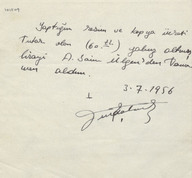 Yaptığım resim ve kopya ücreti
Tutarı olan (60.TL) yalnız altmış
lirayı A. Saim Ülgen'den tamamen aldım.
3-7-1956